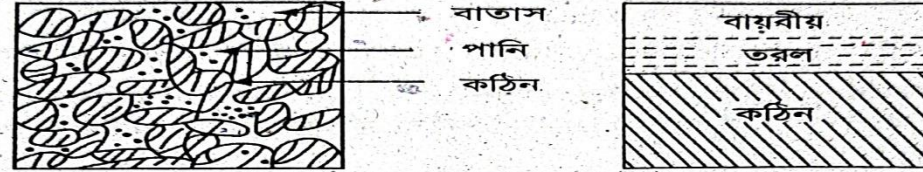 বাতাস
পানি
কঠিন
বায়বীয়
তরল
কঠিন